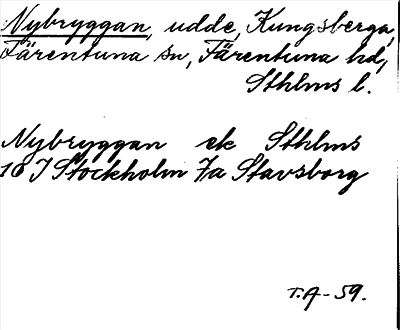 Nybryggan, udde, Kungsberga,
Färentuna sn, Färentuna hd,
Sthlms l.
Nybryggan ek Sthlms
10 I Stockholm 7a Stavsborg
T.A-59.